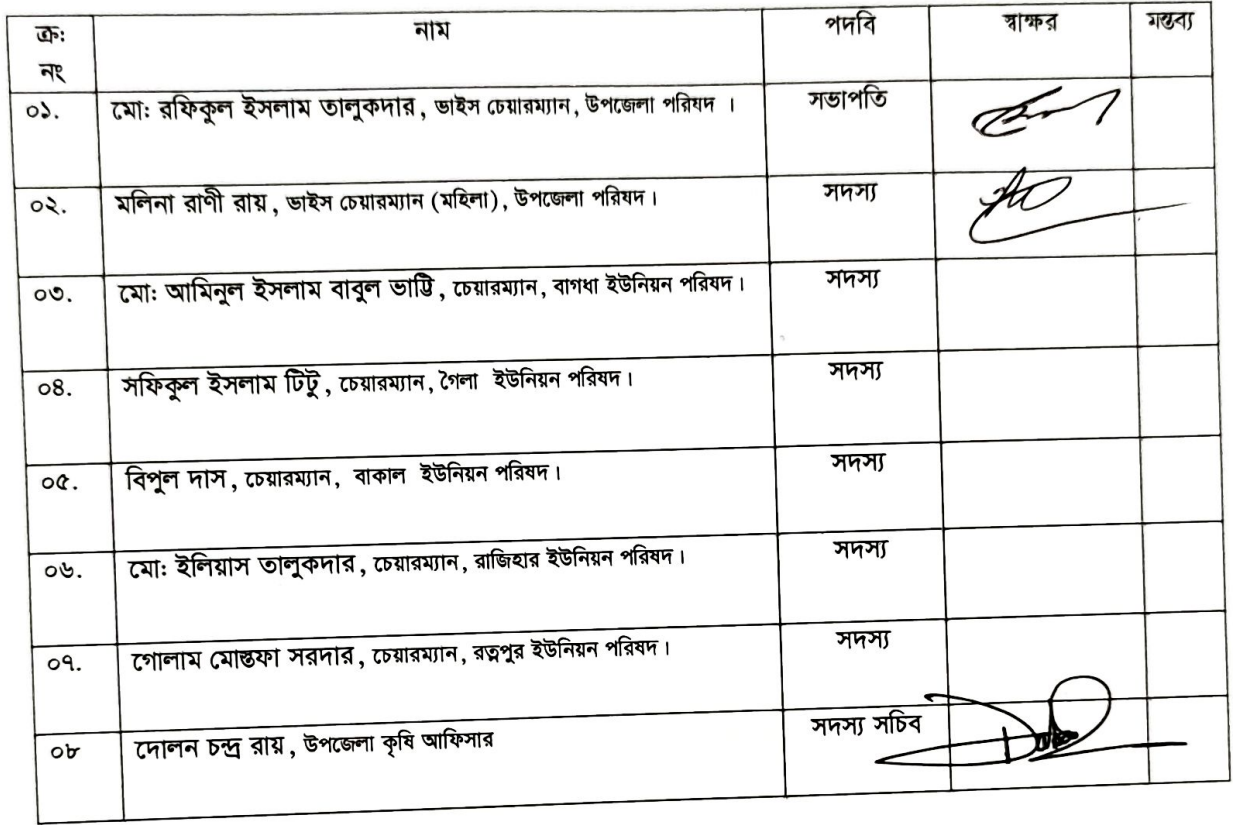 ক্র: নাম পদবি স্বাক্ষর মন্তব্য
নং
০১. মো: রফিকুল ইসলাম তালুকদার, ভাইস চেয়ারম্যান, উপজেলা পরিষদ । সভাপতি
০২. মলিনা রাণী রায়, ভাইস চেয়ারম্যান (মহিলা), উপজেলা পরিষদ । সদস্য
০৩. মো: আমিনুল ইসলাম বাবুল ভাট্টি, চেয়ারম্যান, বাগধা ইউনিয়ন পরিষদ । সদস্য
০৪. সফিকুল ইসলাম টিটু, চেয়ারম্যান, গৈলা ইউনিয়ন পরিষদ । সদস্য
০৫. বিপুল দাস, চেয়ারম্যান, বাকাল ইউনিয়ন পরিষদ । সদস্য
০৬. মো: ইলিয়াস তালুকদার, চেয়ারম্যান, রাজিহার ইউনিয়ন পরিষদ । সদস্য
০৭. গোলাম মোস্তফা সরদার, চেয়ারম্যান, রত্নপুর ইউনিয়ন পরিষদ । সদস্য
০৮ দোলন চন্দ্র রায়, উপজেলা কৃষি আফিসার সদস্য সচিব